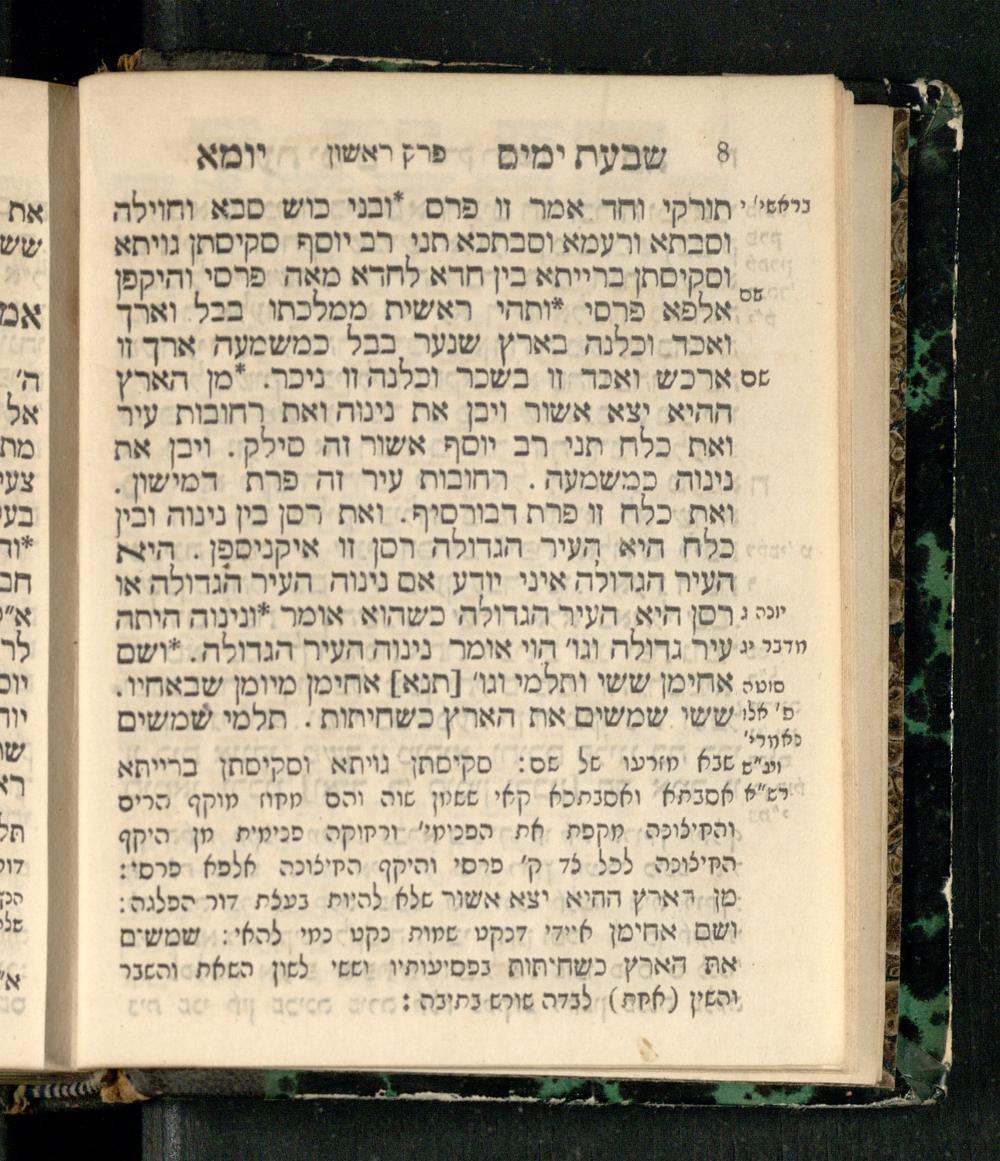 8 שבעת ימים פרק ראשון יומא
בראשי' י תורקי וחד אמר זו פרס *ובני כוש סבא וחוילה
וסבתא ורעמא וסבתכא תני רב יוסף סקיסתן גויתא
וסקיסתן ברייתא בין חדא לחדא מאה פרסי והיקפן
שם אלפא פרסי *ותהי ראשית ממלכתו בבל וארך
ואכד וכלנה בארץ שנער בבל כמשמעה ארך זו
שם ארכש ואכד זו בשכר וכלנה זו ניכר. *מן הארץ
ההיא יצא אשור ויבן את נינוה ואת רחובות עיר
ואת כלח תני רב יוסף אשור זה סילק. ויבן את
נינוה כמשמעה. רחובות עיר זה פרת דמישון.
ואת כלח זו פרת דבורסיף. ואת רסן בין נינוה ובין
כלח היא העיר הגדולה רסן זו איקניספן. היא
העיר הגדולה איני יודע אם נינוה העיר הגדולה או
יונה ג רסן היא העיר הגדולה כשהוא אומר *ונינוה היתה
מדבר יג עיר גדולה וגו' הוי אומר נינוה העיר הגדולה. *ושם
סוטה אחימן ששי ותלמי וגו' [תנא] אחימן מיומן שבאחיו.
פ' אלו ששי שמשים את הארץ כשחיתות. תלמי שמשים
נאמרי'
ועיי"ש שבא מזרעו של שם: סקיסתן גויתא וסקיסתן ברייתא
רש"א אסבתא ואסבתכא קאי
והתיכונה מקפת את הפנימי' ורחוקה פנימית מן היקף
התיכונה לכל צד ק' פרסי והיקף התיכונה אלפא פרסי:
מן הארץ ההיא יצא אשור שלא להיות בעצת דור הפלגה:
ושם אחימן איידי דנקט שמות נקט נמי להאי: שמשים
את הארץ כשחיתות בפסיעותיו וששי לשון השאת והשבר
והשין (אחת) לבדה שורש בתיבה:
את
שש
אמ
ה'
אל
מת
צעי
בעי
*וה
חב
לר
יום